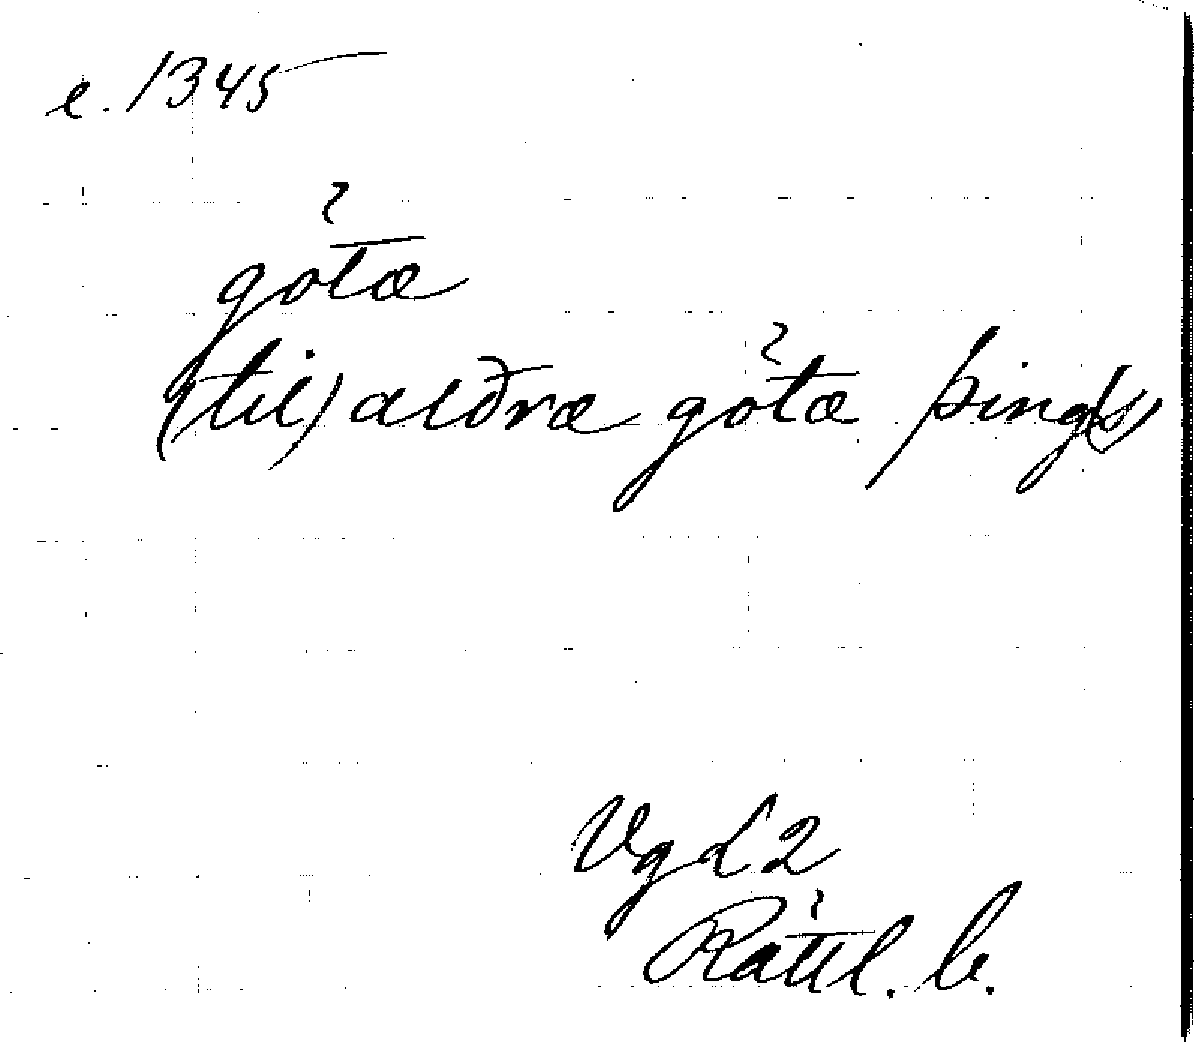 c. 1345
göta
(til) alðra göta þing(s)
VgL 2
Rättl. b.